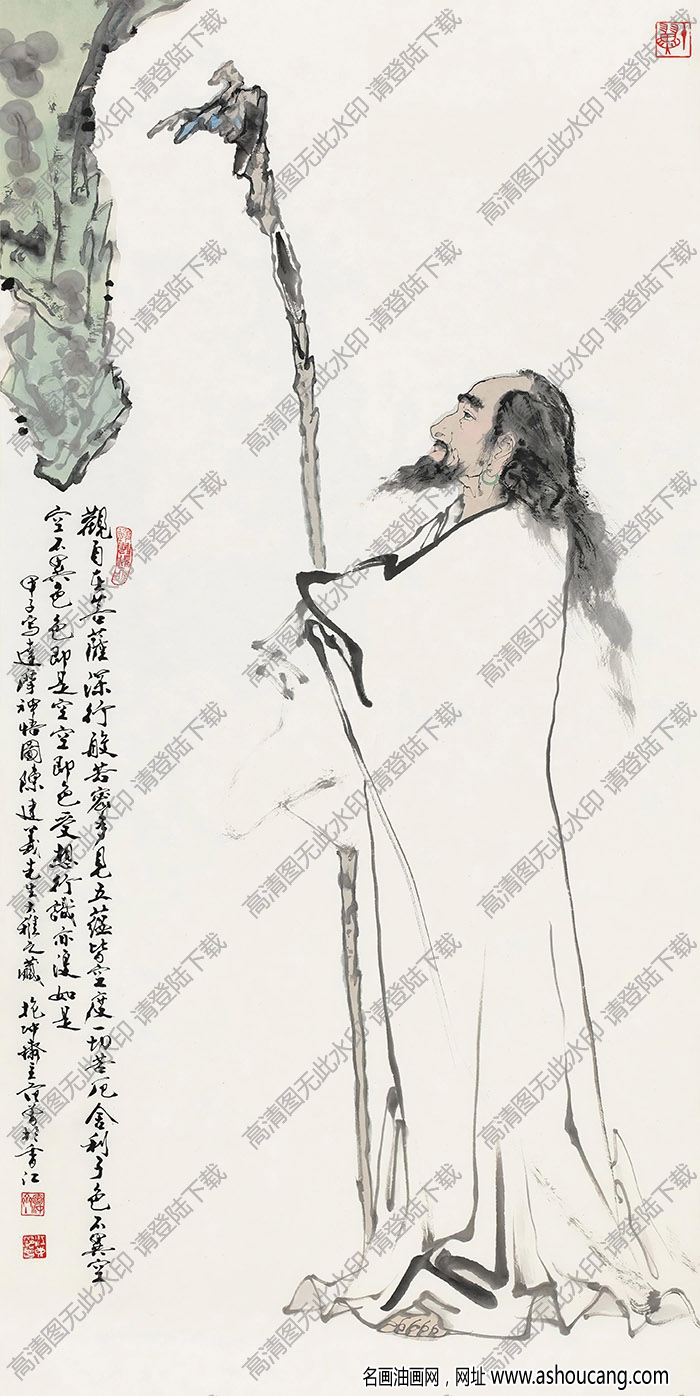 觀自在菩薩深行般若密多見五蘊皆空度一切苦厄舍利子色不異空
空不異色色即是空空即色受想行識亦復如是
甲子寫達摩神悟圖陳建義先生大雅之藏 抱沖齋主范曾於香江
高清图无此水印 请登陆下载
名画油画网，网址 www.ashoucang.com